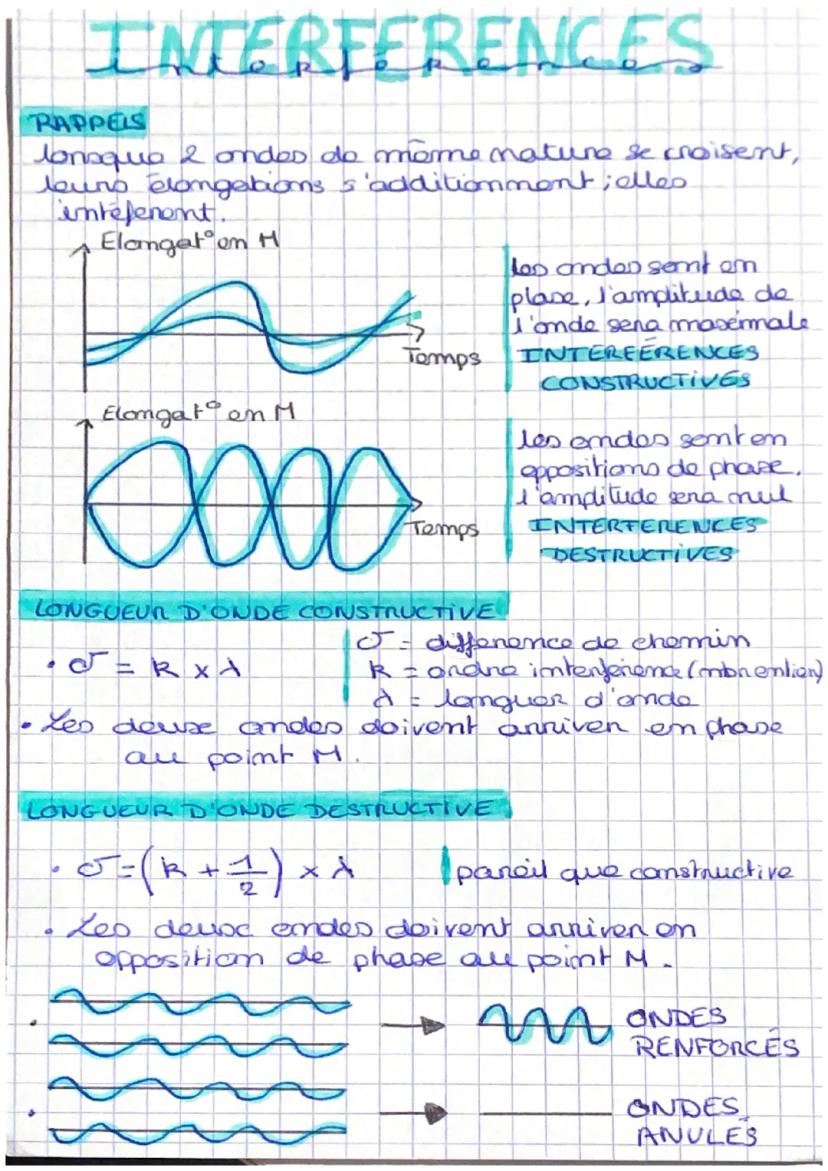 INTERFERENCES
interférences
RAPPELS
lorsque 2 ondes de même nature se croisent,
leurs élongations s'additionnent ; elles
intéferent.
Elongat° en M
Temps
les ondes sont en
phase, l'amplitude de
l'onde sera maximale
INTERFÉRENCES
CONSTRUCTIVES
Elongat° en M
Temps
les ondes sont en
oppositions de phase.
l'amplitude sera nul
INTERFERENCES
DESTRUCTIVES
LONGUEUR D'ONDE CONSTRUCTIVE
• σ = k x λ
σ = difference de chemin
k = ordre interférence (nbr entier)
λ = longuer d'onde
• Les deux ondes doivent arriver en phase
au point M.
LONGUEUR D'ONDE DESTRUCTIVE
• σ = (k + 1/2) x λ
pareil que constructive
• Les deux ondes doivent arriver en
opposition de phase au point M.
ONDES
RENFORCÉS
ONDES
ANULÉS